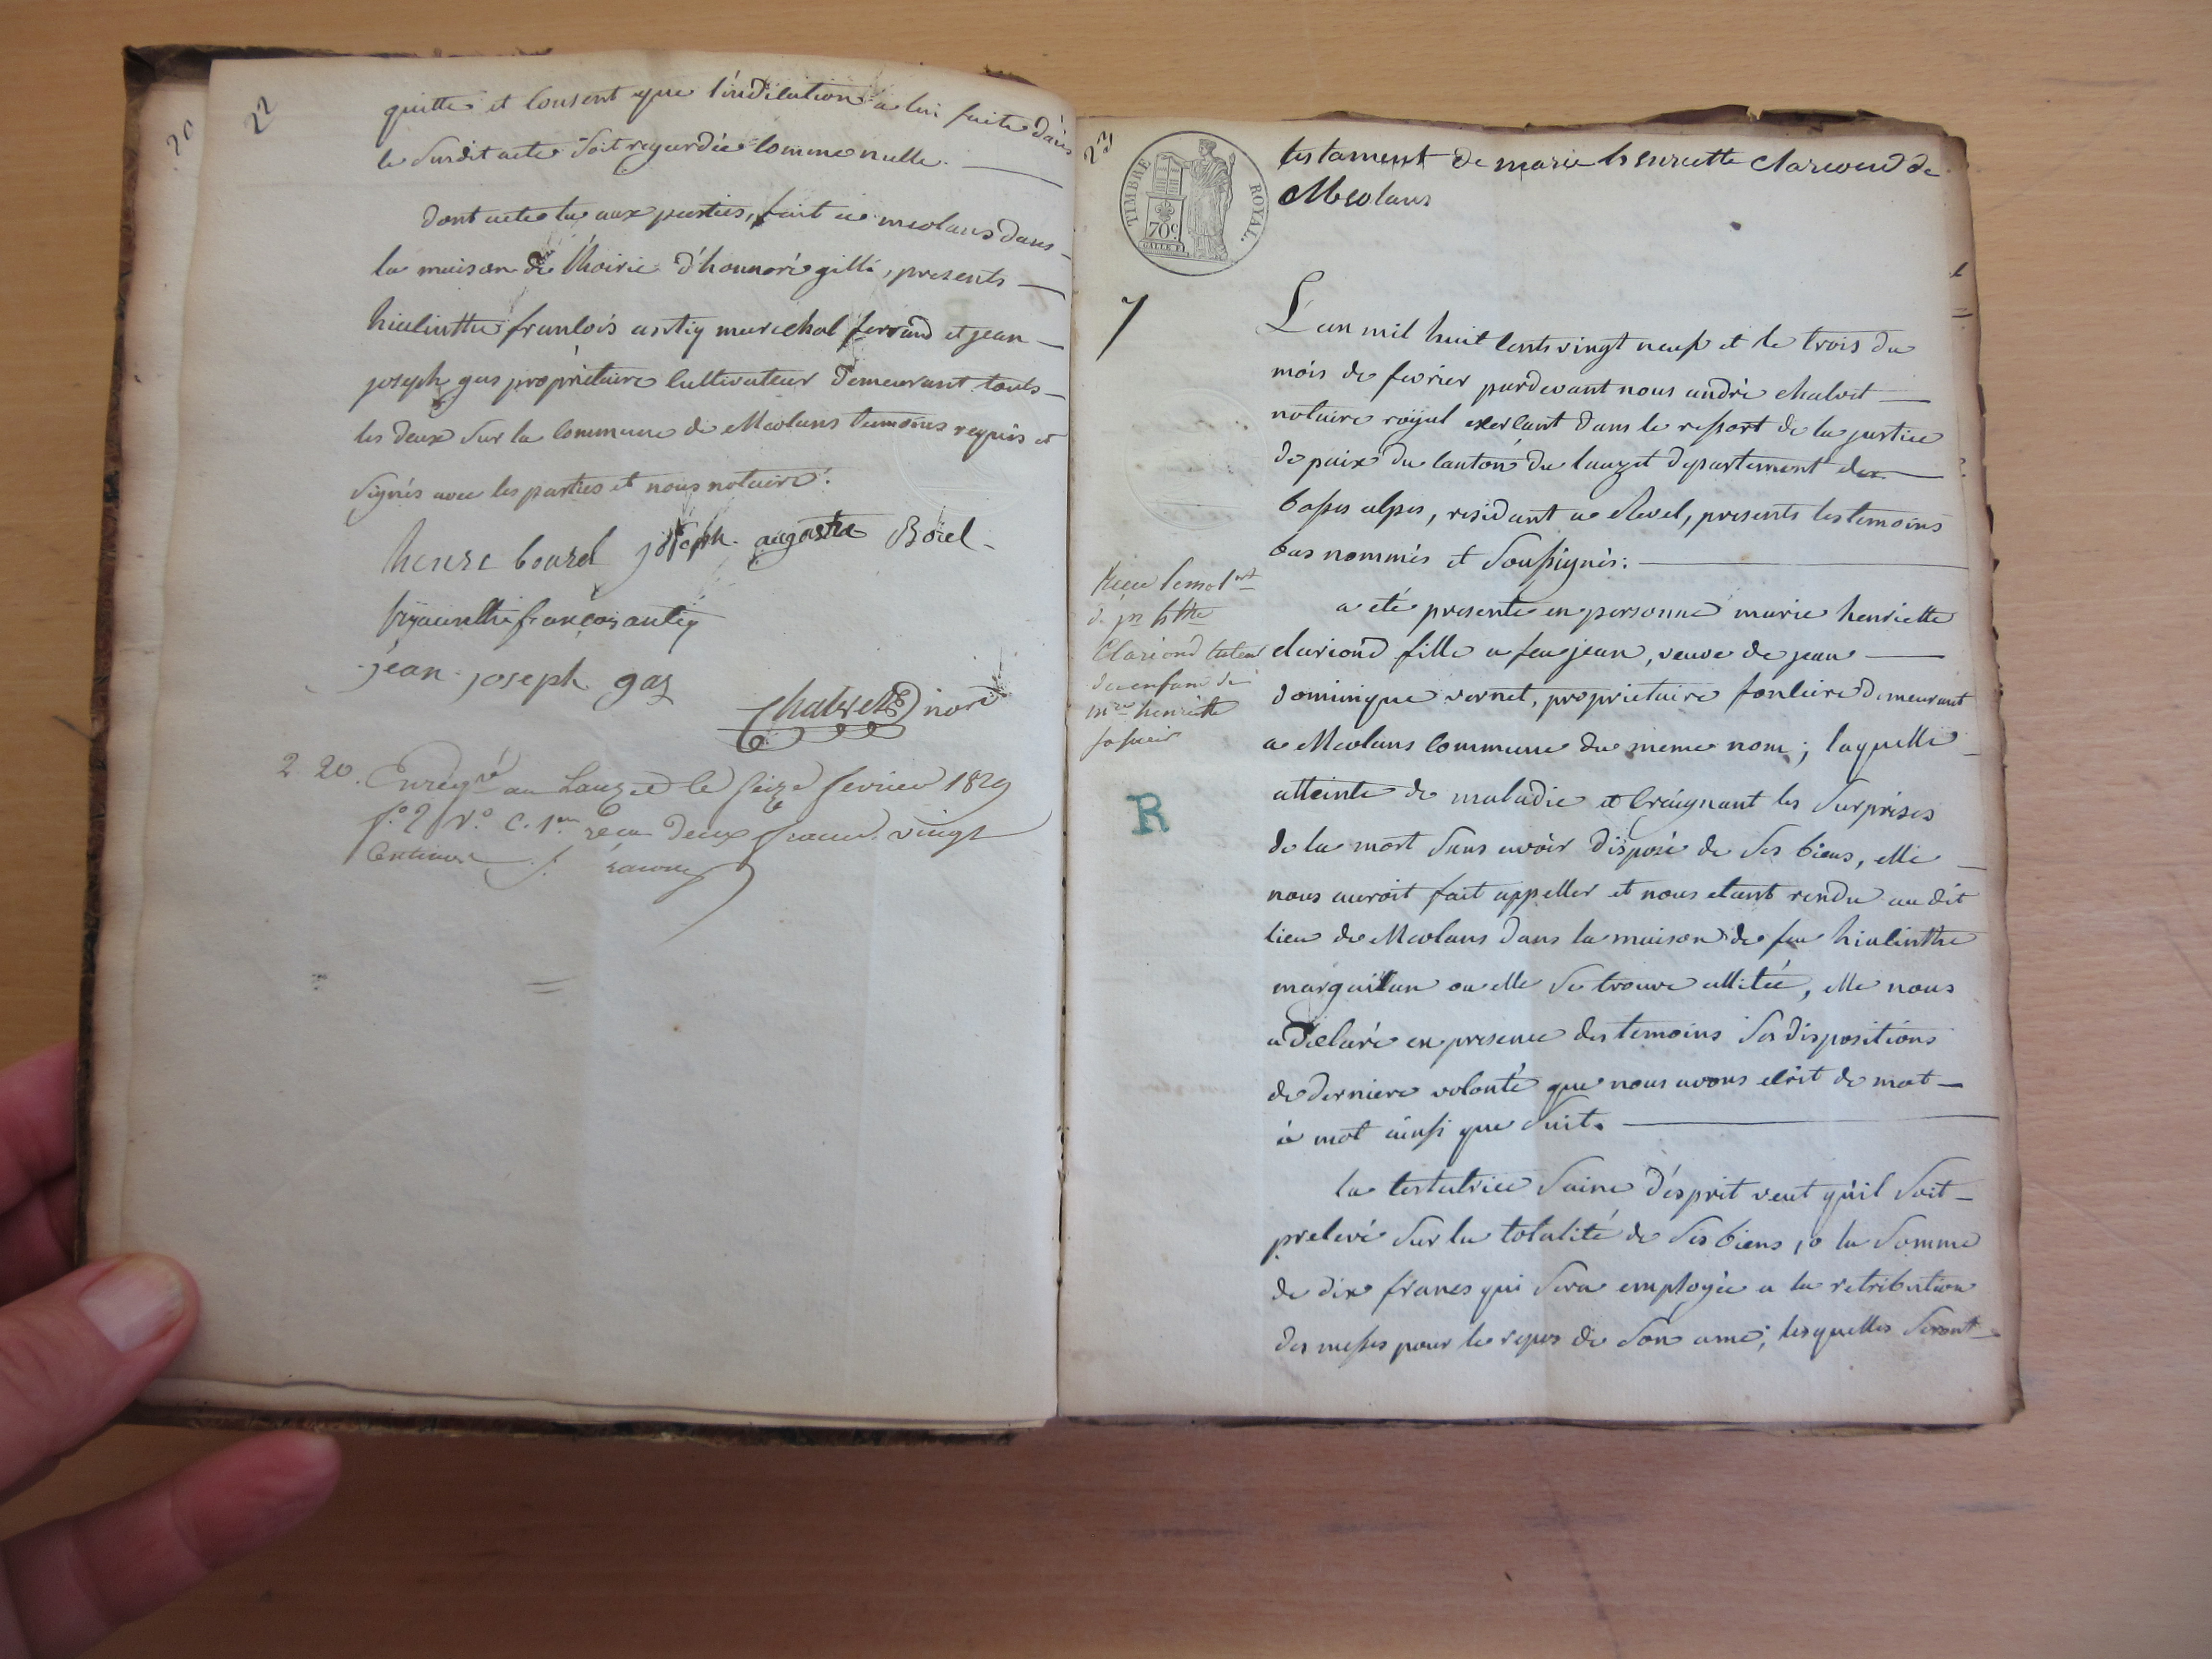 20
22
quitte et consent que l'indication a lui faite dans
le susdit acte soit regardée comme nulle.
dont acte lu aux parties, fait a meolans dans
la maison de l'hoirie d'honnoré gilli, presents
hiacinthe francois antiq marechal ferrand et jean
joseph gas propriétaire cultivateur demeurant touts
les deux sur la commune de Meolans temoins requis et
signés avec les parties et nous notaire.
henre bourel joseph augustin Borel
hyacinthe françois antiq
jean joseph gas
Chalvet nore
2. 20. Enregtré au Lauzet le seize fevrier 1829
f° 2 v° c. 1re recu deux francs vingt
centimes
23
TIMBRE ROYAL.
70c
testament de marie henriette clariond de
Meolans
7
L'an mil huit cents vingt neuf et le trois du
mois de fevrier pardevant nous andré chalvet
notaire royal exercant dans le ressort de la justice
de paix du canton du lauzet departement des
basses alpes, residant a Revel, presents les temoins
bas nommés et soussignés:
a été presente en personne marie henriette
clariond fille a feu jean, veuve de jean
dominique vernet, proprietaire fonciere demeurant
a Meolans commune du meme nom; laquelle
atteinte de maladie et craignant les surprises
de la mort sans avoir disposé de ses biens, elle
nous auroit fait appeller et nous etant rendu au dit
lieu de Meolans dans la maison de feu hiacinthe
margaillan ou elle se trouve allitée, elle nous
a declaré en presence des temoins ses dispositions
de derniere volonté que nous avons ecrit de mot
à mot ainsi que suit.
la testatrice saine d'esprit veut qu'il soit
prelevé sur la totalité de ses biens, 1° la somme
de dix francs qui sera employée a la retribution
des messes pour le repos de son ame; lesquelles seront
Clariond tuteur
des enfans de
mre henriette
sa sœur
R